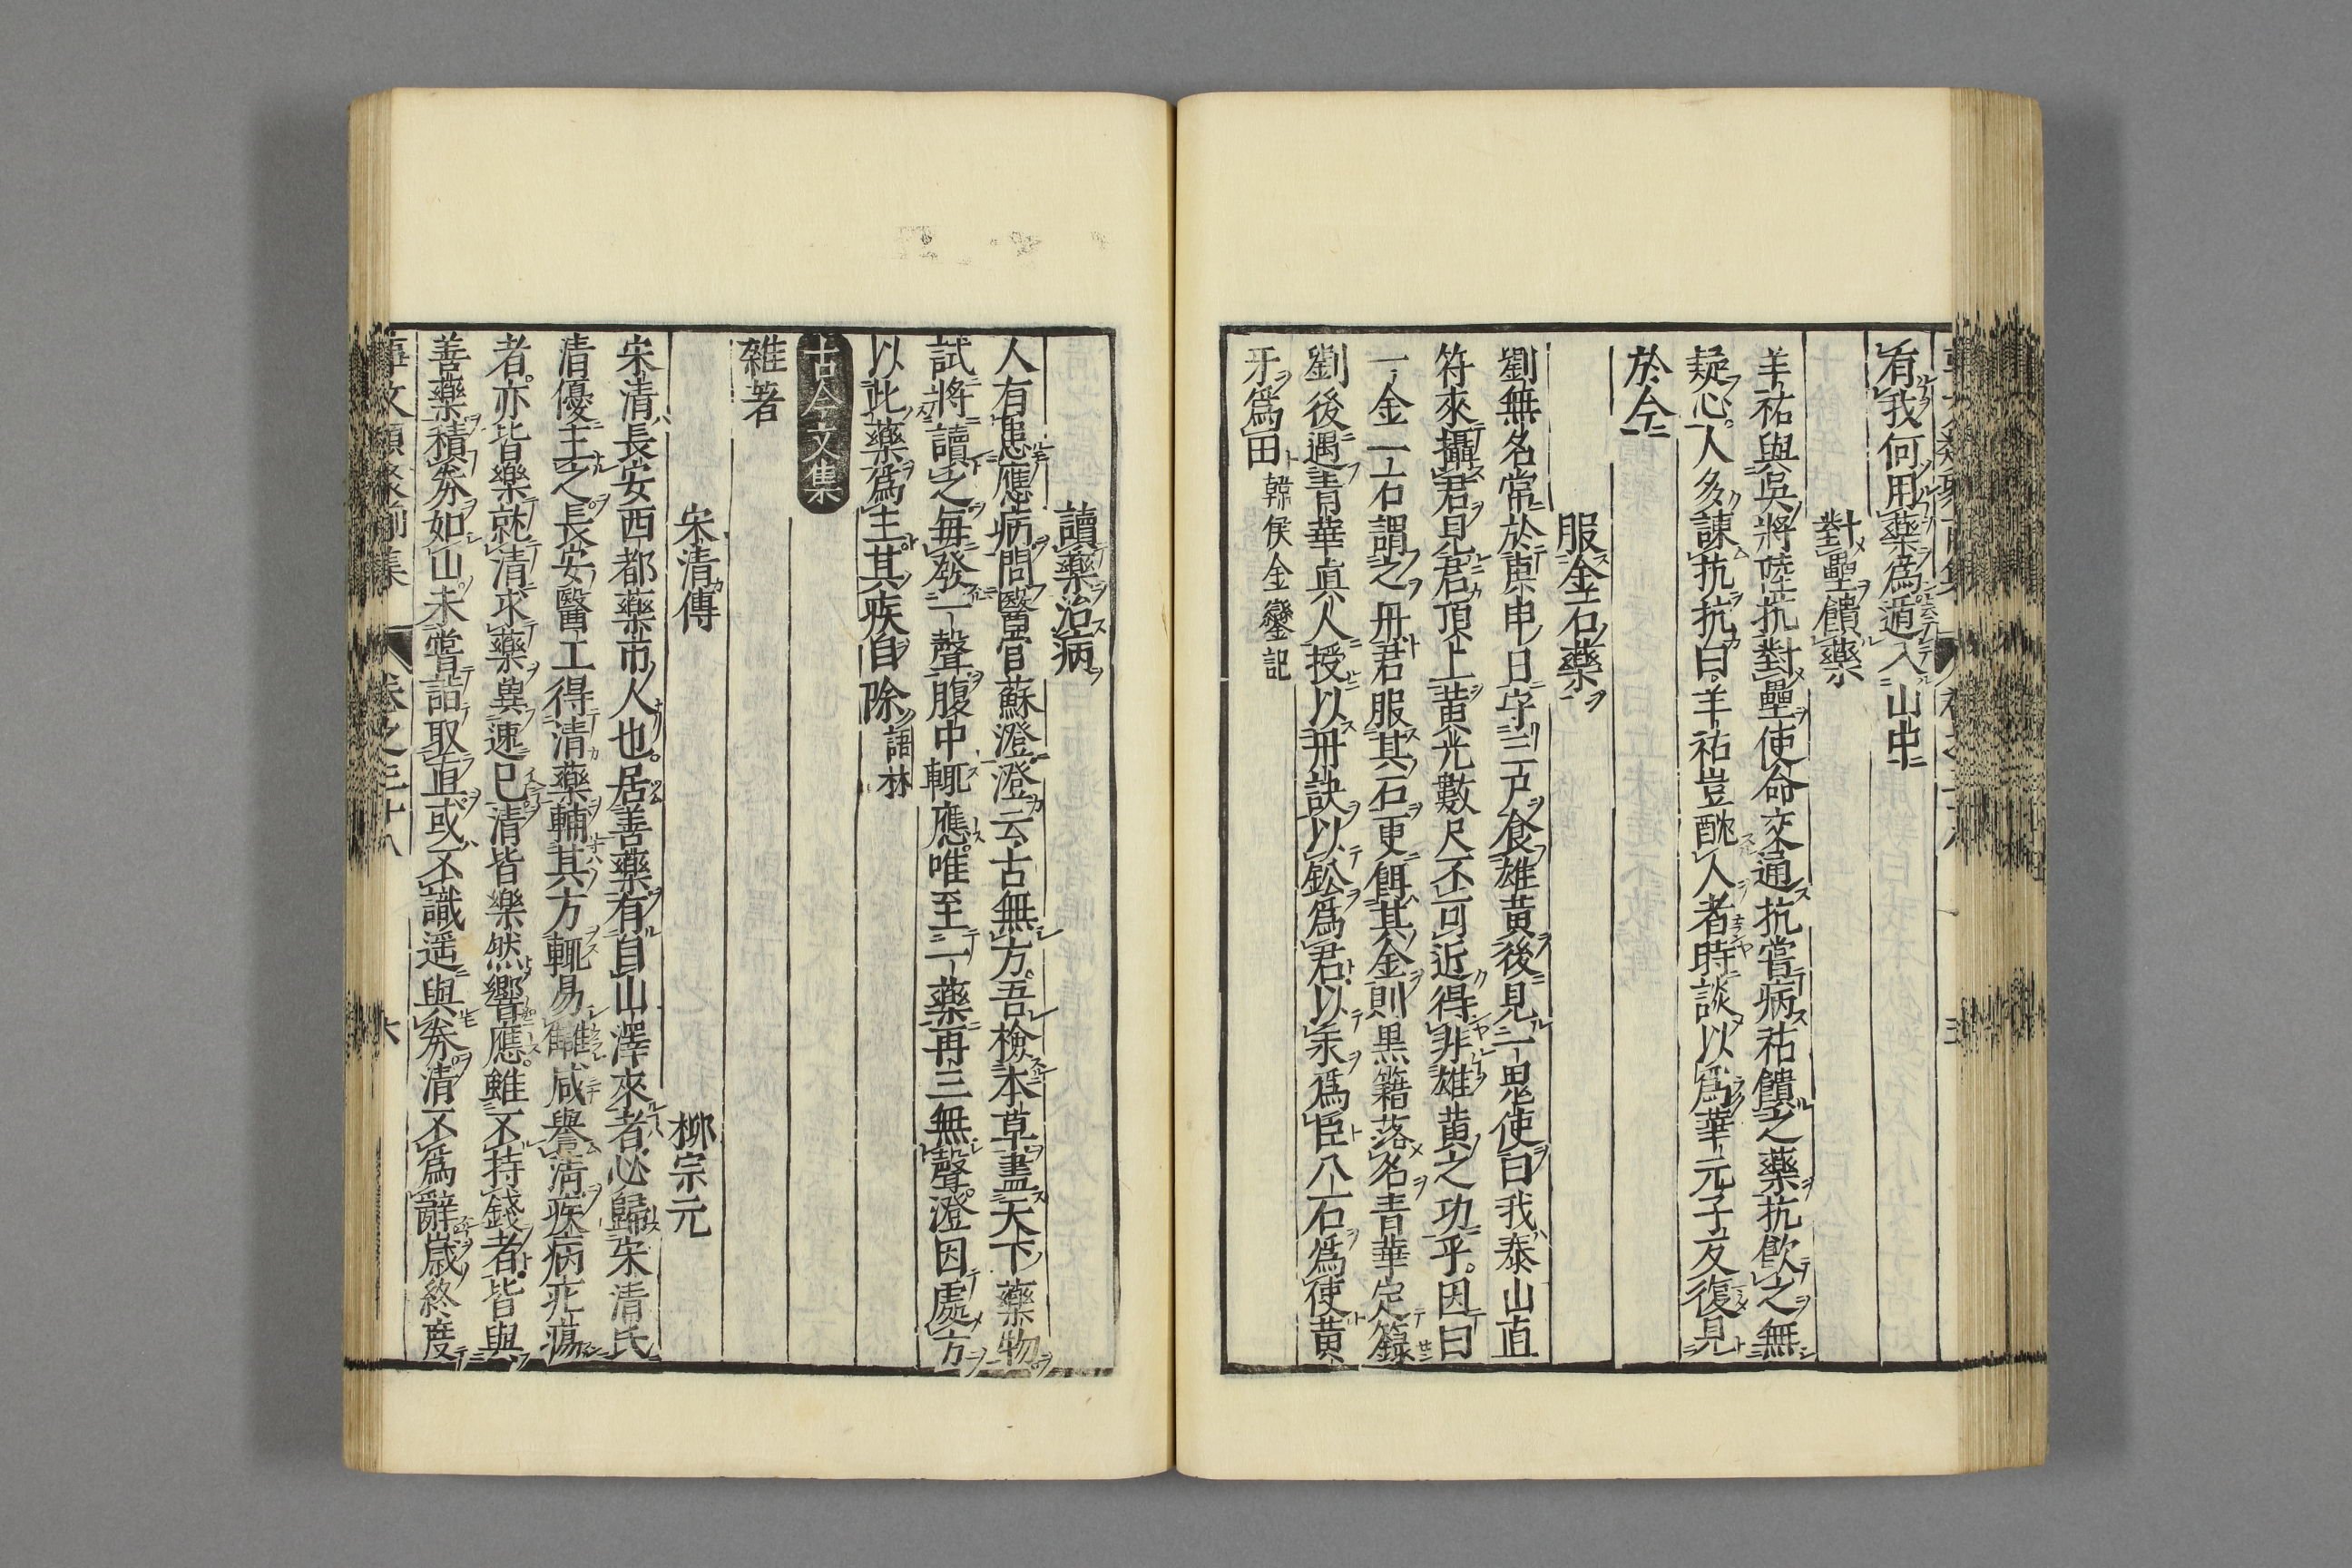 有我何用藥爲遁入山中
對壘饋藥
羊祜與吳將陸抗對壘使命交通抗嘗病祜饋之藥抗飮之無
疑心人多諫抗抗曰羊祜豈酖人者時談以爲華元子反復見
於今
服金石藥
劉無名常於庚申日守三尸食雄黃後見一鬼使曰我泰山直
符來攝君見君頂上黃光數尺不可近得非雄黃之功乎因曰
一金一石謂之丹君服其石更餌其金則黑籍落名青華定籙
劉後遇青華眞人授以丹訣以鈆爲君以汞爲臣八石爲使黃
牙爲田 韓侯金鑾記
讀藥治病
人有患應病問醫官蘇澄澄云古無方吾檢本草盡天下藥物
試將讀之每發一聲腹中輒應唯至一藥再三無聲澄因處方
以此藥爲主其疾自除 語林
古今文集
雜著
宋清傳 柳宗元
宋清長安西都藥市人也居善藥有自山澤來者必歸宋清氏
清優主之長安醫工得清藥輔其方輒易讎咸譽清疾病疕瘍
者亦皆樂就清求藥冀速已清皆樂然響應雖不持錢者皆與
善藥積券如山未嘗詣取直或不識遥與券清不爲辭歲終度
事文類聚前集 卷之三十八 六